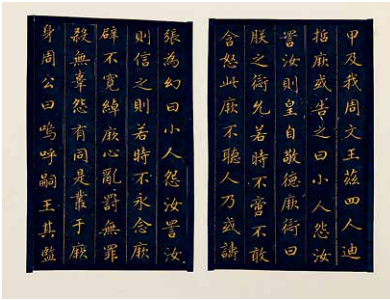 甲及我周文王茲四人迪
哲厥或告之曰小人怨汝
詈汝則皇自敬德厥愆曰
朕之愆允若時不啻不敢
含怒此厥不聽人乃或譸
張為幻曰小人怨汝詈汝
則信之則若時不永念厥
辟不寬綽厥心亂罰無罪
殺無辜怨有同是叢于厥
身周公曰嗚呼嗣王其監